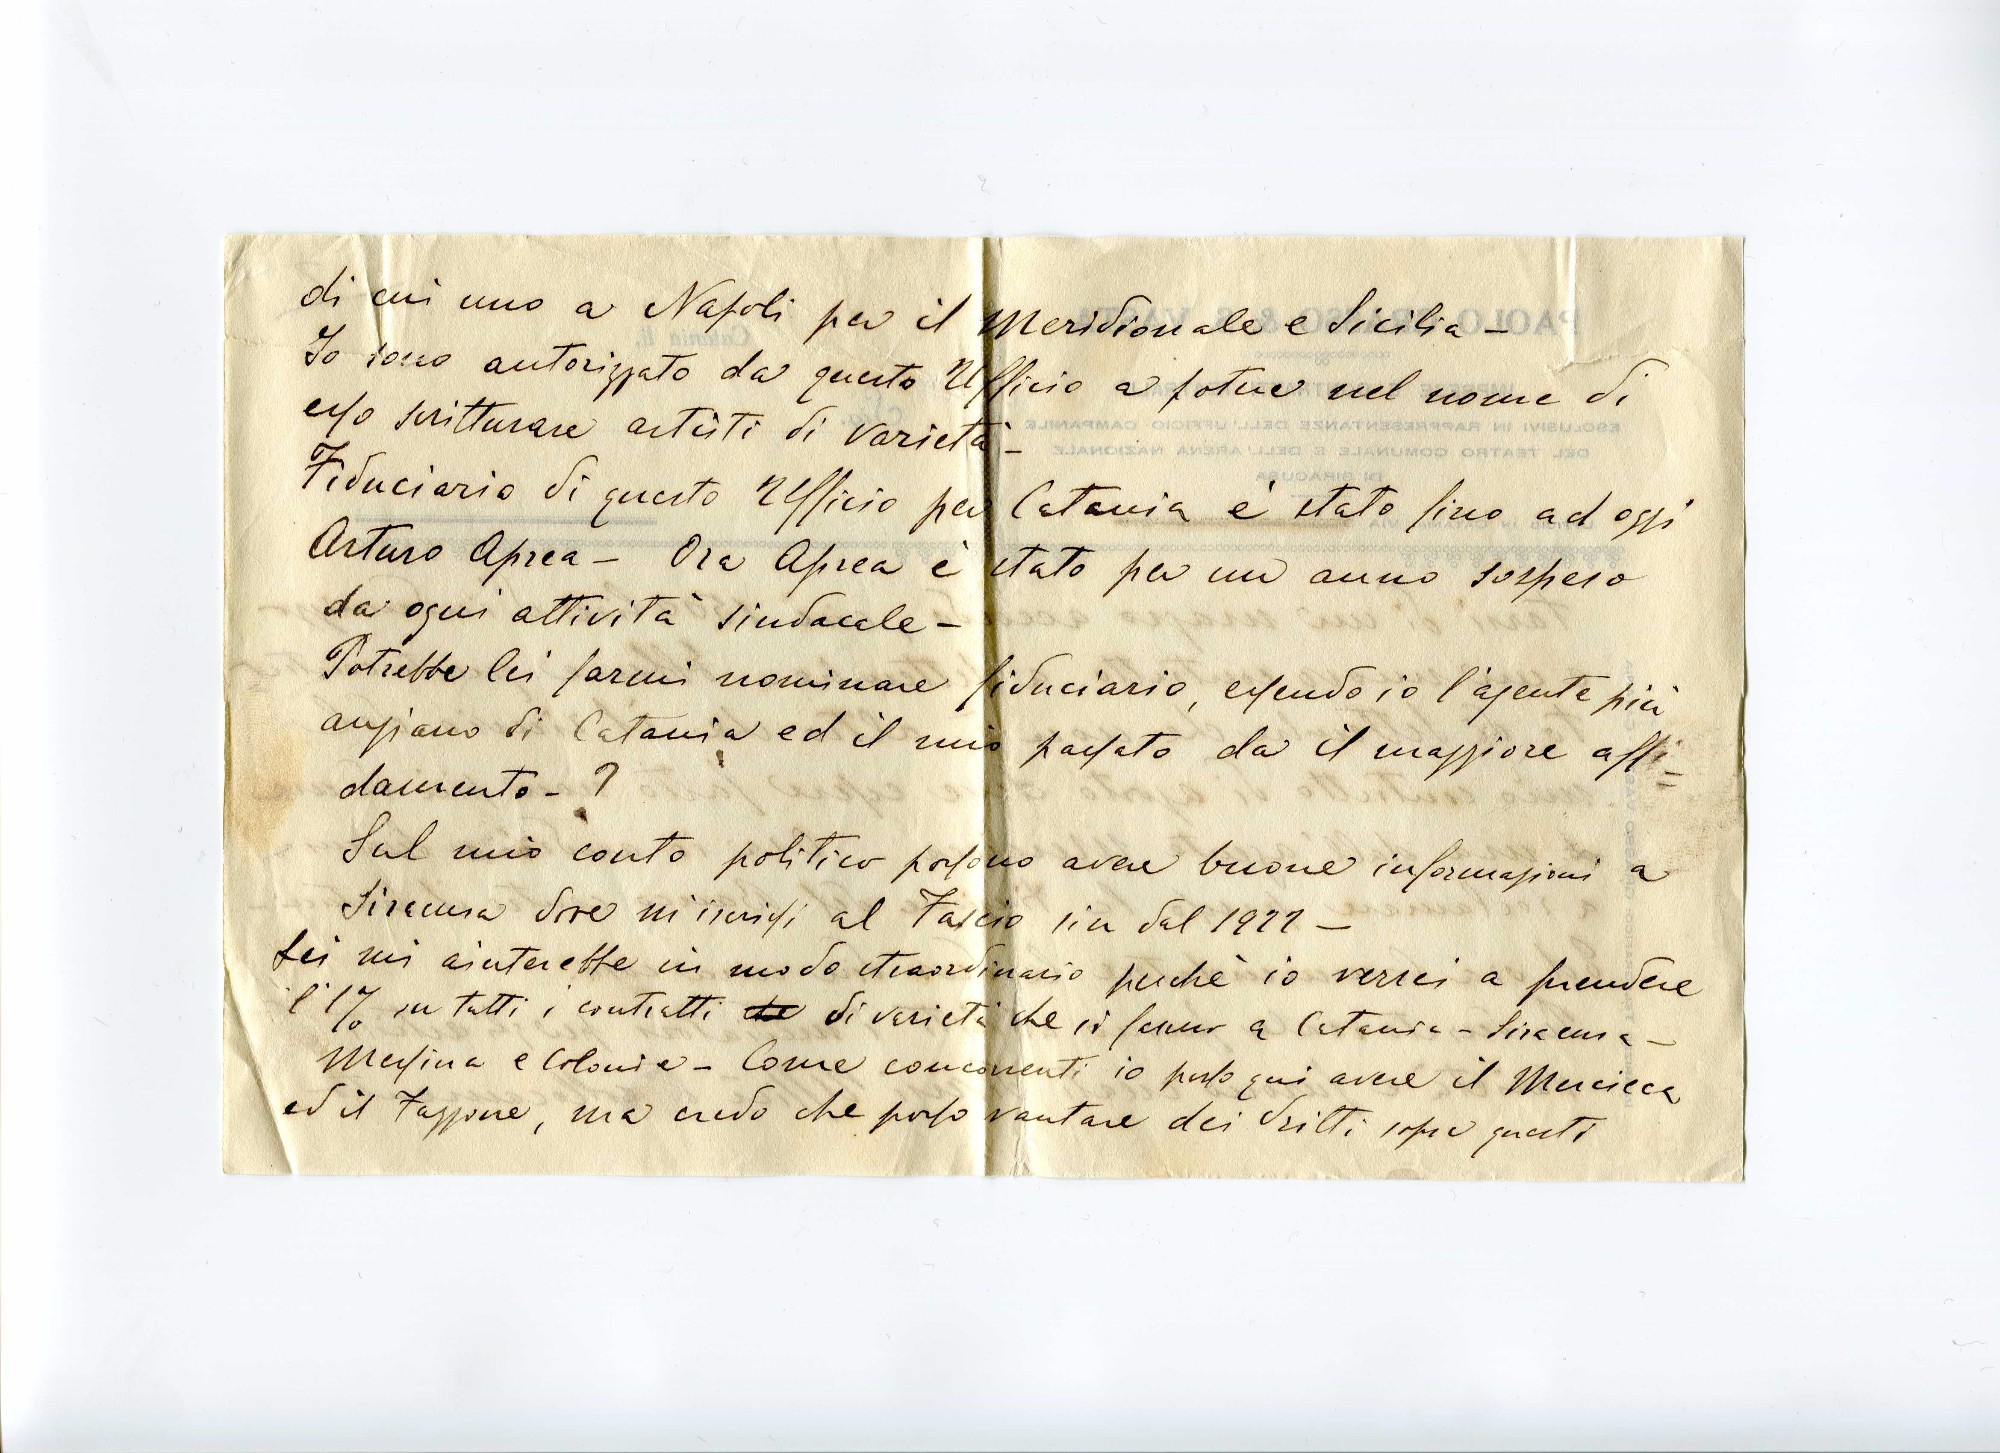 di cui uno a Napoli per il Meridionale e Sicilia –
Io sono autorizzato da questo Ufficio a poter nel nome di
esso scritturare artisti di varietà –
Fiduciario di questo Ufficio per Catania è stato fino ad oggi
Arturo Aprea – Ora Aprea è stato per un anno sospeso
da ogni attività sindacale –
Potrebbe lei farmi nominare fiduciario, essendo io l'agente più
anziano di Catania ed il mio passato da il maggiore affi=
damento – ?
Sul mio conto politico possono avere buone informazioni a
Siracusa dove m'iscrissi al Fascio sin dal 1922 –
Lei mi aiuterebbe in modo straordinario perchè io verrei a prendere
l'1% su tutti i contratti di varietà che si fanno a Catania – Siracusa –
Messina e Colonie – Come concorrenti io posso qui avere il
ed il Fazzone, ma credo che posso vantare dei dritti sopra questi
PAOLO
Catania li,
ESCLUSIVI IN RAPPRESENTANZE DELL'UFFICIO CAMPANILE
DEL TEATRO COMUNALE E DELL'ARENA NAZIONALE
DI SIRACUSA